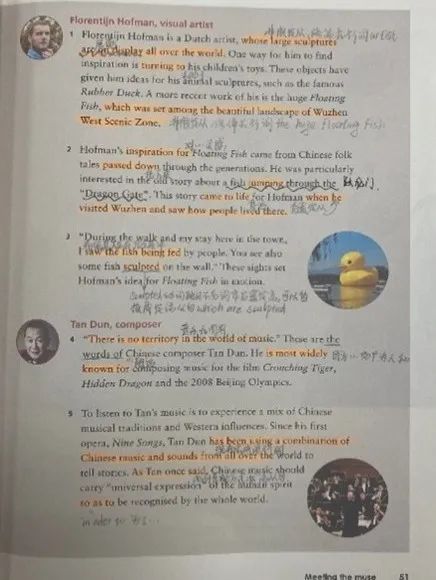 Florentijn Hofman, visual artist
1 Florentijn Hofman is a Dutch artist, whose large sculptures
are on display all over the world. One way for him to find
inspiration is turning to his children's toys. These objects have
given him ideas for his animal sculptures, such as the famous
Rubber Duck. A more recent work of his is the huge Floating
Fish, which was set among the beautiful landscape of Wuzhen
West Scenic Zone.
the huge Floating Fish
2 Hofman's inspiration for Floating Fish came from Chinese folk
tales passed down through the generations. He was particularly
interested in the old story about a fish jumping through the
"Dragon Gate". This story came to life for Hofman when he
visited Wuzhen and saw how people lived there.
3 "During the walk and my stay here in the town,
I saw the fish being fed by people. You see also
some fish sculpted on the wall." These sights set
Hofman's idea for Floating Fish in motion.
sculpted
which are sculpted
Tan Dun, composer
4 "There is no territory in the world of music." These are the
words of Chinese composer Tan Dun. He is most widely
known for composing music for the film Crouching Tiger,
Hidden Dragon and the 2008 Beijing Olympics.
5 To listen to Tan's music is to experience a mix of Chinese
musical traditions and Western influences. Since his first
opera, Nine Songs, Tan Dun has been using a combination of
Chinese music and sounds from all over the world to
tell stories. As Tan once said, Chinese music should
carry "universal expression of the human spirit
so as to be recognised by the whole world.
Meeting the muse 51